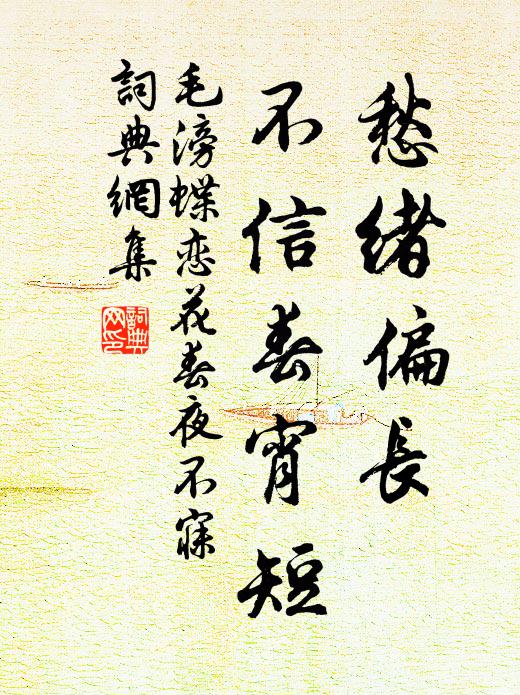 愁緒偏長
不信春宵短
毛滂蝶恋花春夜不寐
詞典網集
詞典网印